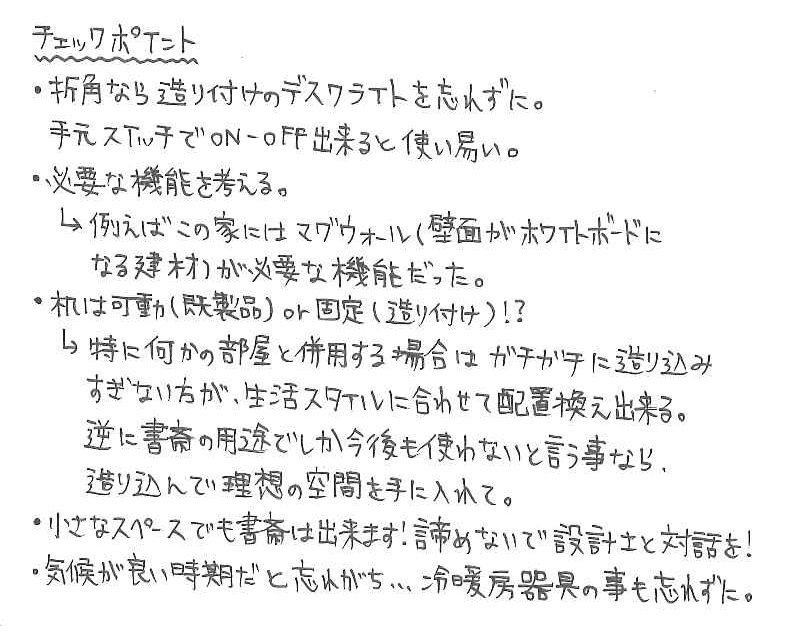 チェックポイント
・折角なら造り付けのデスクライトを忘れずに。
手元スイッチでON-OFF出来ると使い易い。
・必要な機能を考える。
↳例えばこの家にはマグウォール(壁面がホワイトボードに
なる建材)が必要な機能だった。
・机は可動(既製品)or固定(造り付け)!?
↳特に何かの部屋と併用する場合はガチガチに造り込み
すぎない方が、生活スタイルに合わせて配置換え出来る。
逆に書斎の用途でしか今後も使わないと言う事なら、
造り込んで理想の空間を手に入れて。
・小さなスペースでも書斎は出来ます!諦めないで設計士と対話を!
・気候が良い時期だと忘れがち...冷暖房器具の事も忘れずに。